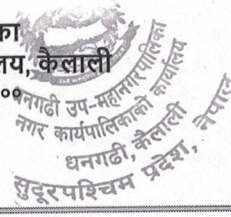 का
लय, कैलाली
००
धनगढी उप-महानगरपालिका
नगर कार्यपालिकाको कार्यालय
धनगढी, कैलाली
सुदूरपश्चिम प्रदेश, नेपाल